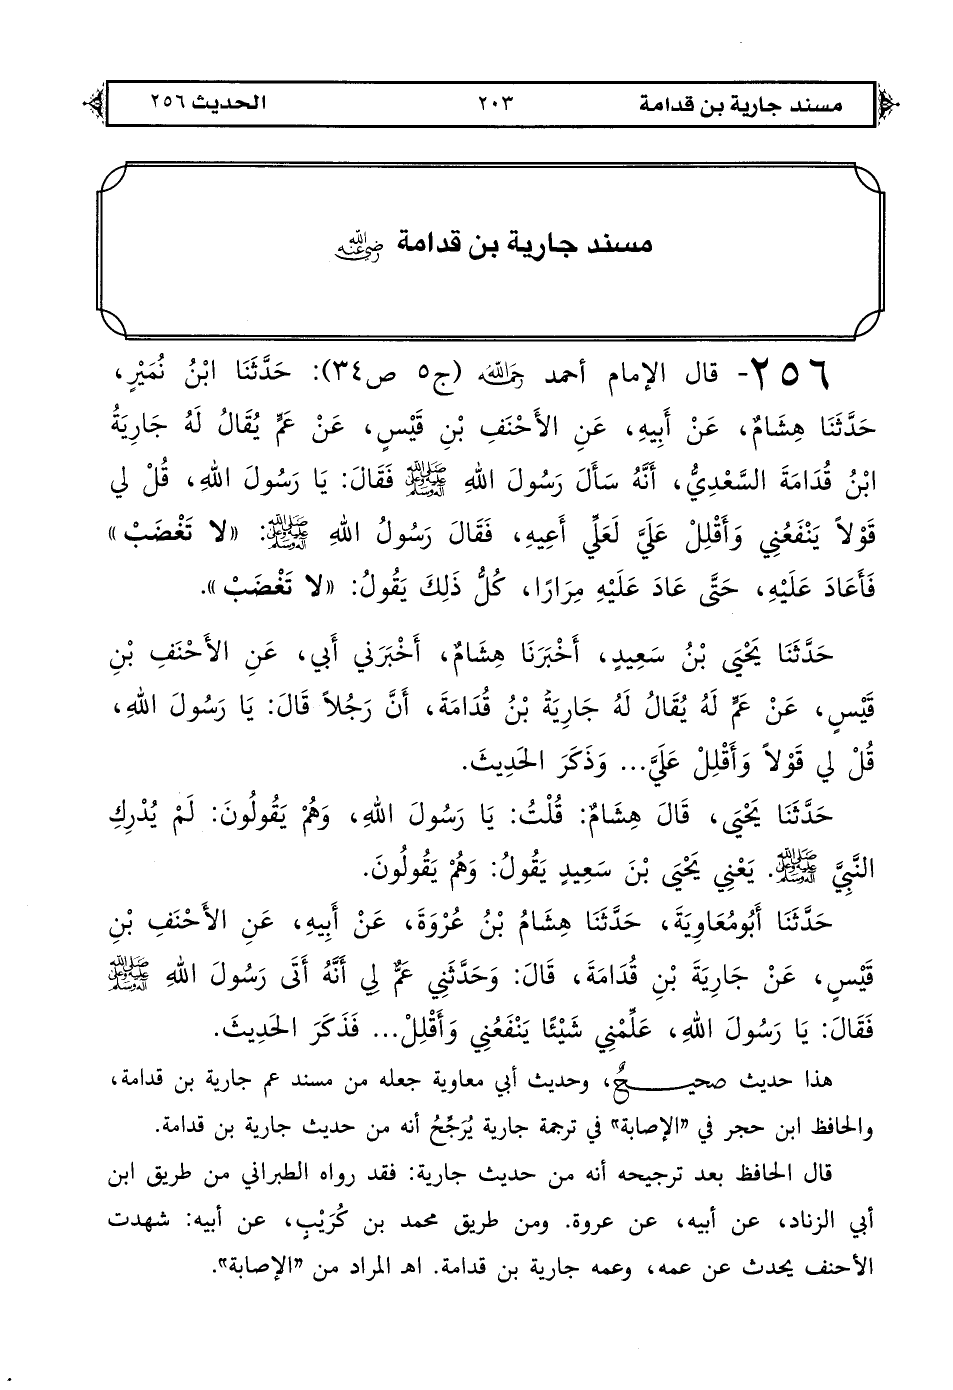 مسند جارية بن قدامة ٢٠٣ الحديث ٢٥٦
مسند جارية بن قدامة رضي الله عنه
٢٥٦- قال الإمام أحمد رحمه الله (ج٥ ص٣٤): حَدَّثَنَا ابْنُ نُمَيْرٍ،
حَدَّثَنَا هِشَامٌ، عَنْ أَبِيهِ، عَنِ الأَحْنَفِ بْنِ قَيْسٍ، عَنْ عَمٍّ يُقَالُ لَهُ جَارِيَةُ
ابْنُ قُدَامَةَ السَّعْدِيُّ، أَنَّهُ سَأَلَ رَسُولَ اللهِ ﷺ فَقَالَ: يَا رَسُولَ اللهِ، قُلْ لي
قَوْلاً يَنْفَعُنِي وَأَقْلِلْ عَلَيَّ لَعَلِّي أَعِيهِ، فَقَالَ رَسُولُ اللهِ ﷺ: «لا تَغْضَبْ»
فَأَعَادَ عَلَيْهِ، حَتَّى عَادَ عَلَيْهِ مِرَارًا، كُلُّ ذَلِكَ يَقُولُ: «لا تَغْضَبْ».
حَدَّثَنَا يَحْيَى بْنُ سَعِيدٍ، أَخْبَرَنَا هِشَامٌ، أَخْبَرَني أَبي، عَنِ الأَحْنَفِ بْنِ
قَيْسٍ، عَنْ عَمٍّ لَهُ يُقَالُ لَهُ جَارِيَةُ بْنُ قُدَامَةَ، أَنَّ رَجُلاً قَالَ: يَا رَسُولَ اللهِ،
قُلْ لي قَوْلاً وَأَقْلِلْ عَلَيَّ... وَذَكَرَ الحَدِيثَ.
حَدَّثَنَا يَحْيَى، قَالَ هِشَامٌ: قُلْتُ: يَا رَسُولَ اللهِ، وَهُمْ يَقُولُونَ: لَمْ يُدْرِكِ
النَّبِيَّ ﷺ. يَعْنِي يَحْيَى بْنَ سَعِيدٍ يَقُولُ: وَهُمْ يَقُولُونَ.
حَدَّثَنَا أَبُومُعَاوِيَةَ، حَدَّثَنَا هِشَامُ بْنُ عُرْوَةَ، عَنْ أَبِيهِ، عَنِ الأَحْنَفِ بْنِ
قَيْسٍ، عَنْ جَارِيَةَ بْنِ قُدَامَةَ، قَالَ: وَحَدَّثَنِي عَمٌّ لِي أَنَّهُ أَتَى رَسُولَ اللهِ ﷺ
فَقَالَ: يَا رَسُولَ اللهِ، عَلِّمْنِي شَيْئًا يَنْفَعُنِي وَأَقْلِلْ... فَذَكَرَ الحَدِيثَ.
هذا حديث صحيـــــحٌ، وحديث أبي معاوية جعله من مسند عم جارية بن قدامة،
والحافظ ابن حجر في "الإصابة" في ترجمة جارية يُرَجِّحُ أنه من حديث جارية بن قدامة.
قال الحافظ بعد ترجيحه أنه من حديث جارية: فقد رواه الطبراني من طريق ابن
أبي الزناد، عن أبيه، عن عروة. ومن طريق محمد بن كُرَيْبٍ، عن أبيه: شهدت
الأحنف يحدث عن عمه، وعمه جارية بن قدامة. اهـ المراد من "الإصابة".